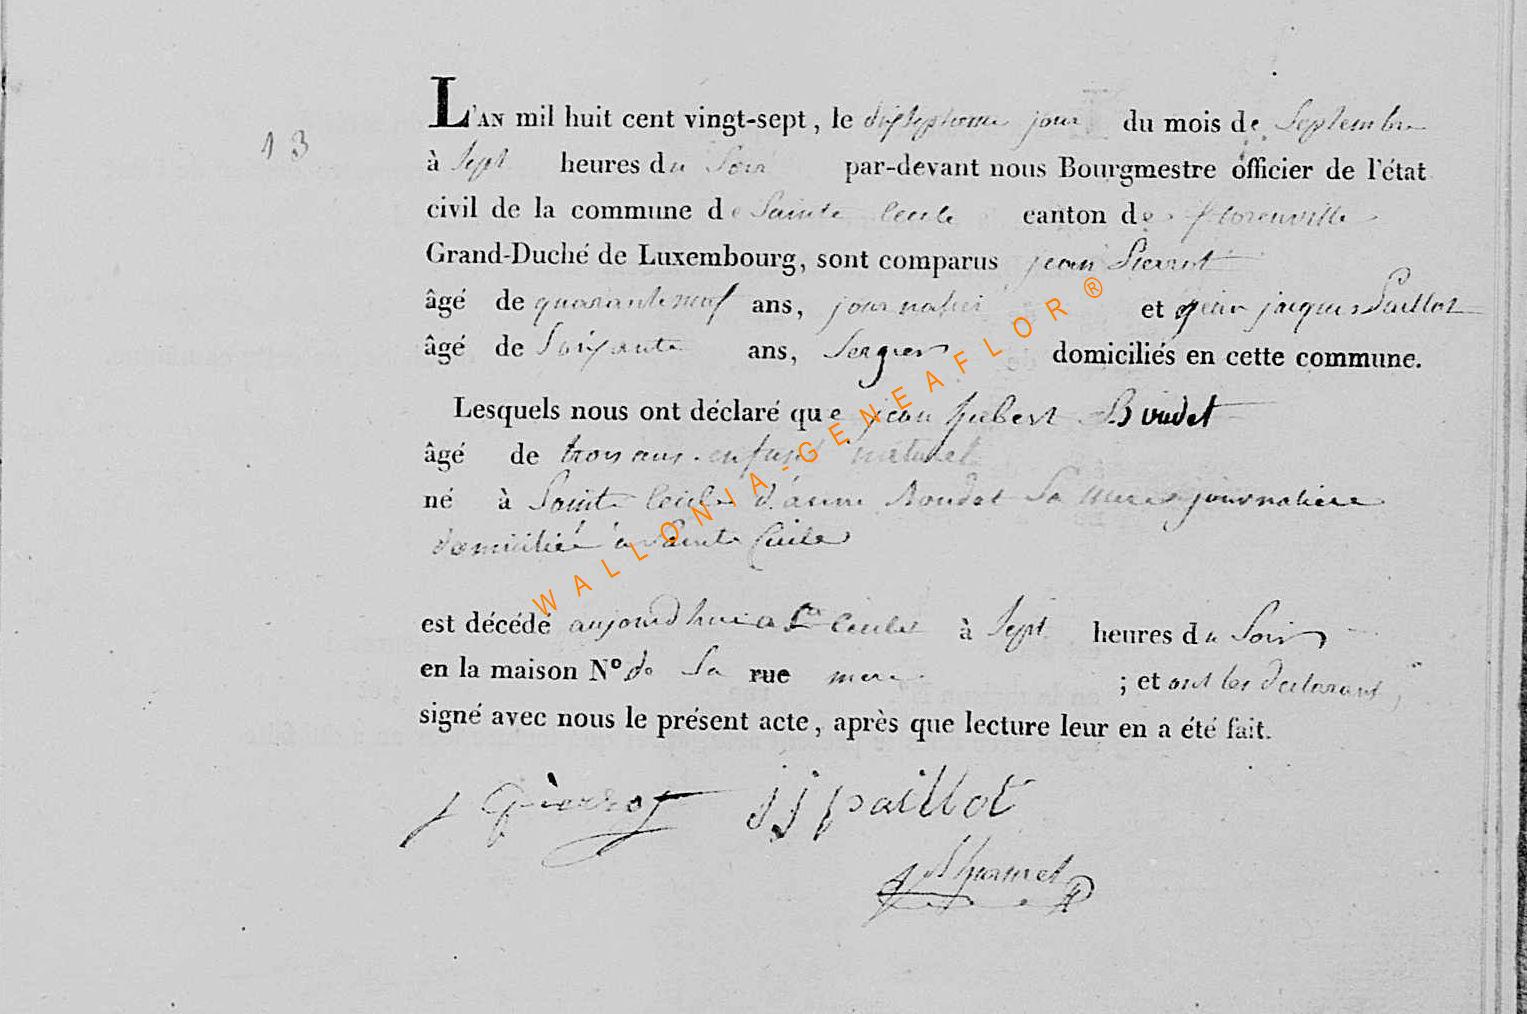 13
L'AN mil huit cent vingt-sept, le dixseptieme jour du mois de Septembre
à Sept heures du Soir par-devant nous Bourgmestre officier de l'état
civil de la commune de Sainte Cecile canton de florenville
Grand-Duché de Luxembourg, sont comparus jean Pierrot
âgé de quaranteneuf ans, journalier et jean jacques Paillot
âgé de Soixante ans, domiciliés en cette commune.
Lesquels nous ont déclaré que jean hubert Boudet
âgé de trois ans . enfant naturel
né à Sainte Cecile d'anne Boudet Sa mere journaliere
domiciliée a Sainte Cecile
est décédé aujourd'hui a Ste Cecile à Sept heures du Soir
en la maison N° de Sa rue mere ; et ont les declarant
signé avec nous le présent acte, après que lecture leur en a été fait.
j Pierrot jj paillot
WALLONIA-GENEAFLOR®